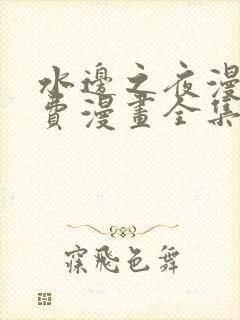 水邊之夜漫
費漫畫全集
寐飛色舞